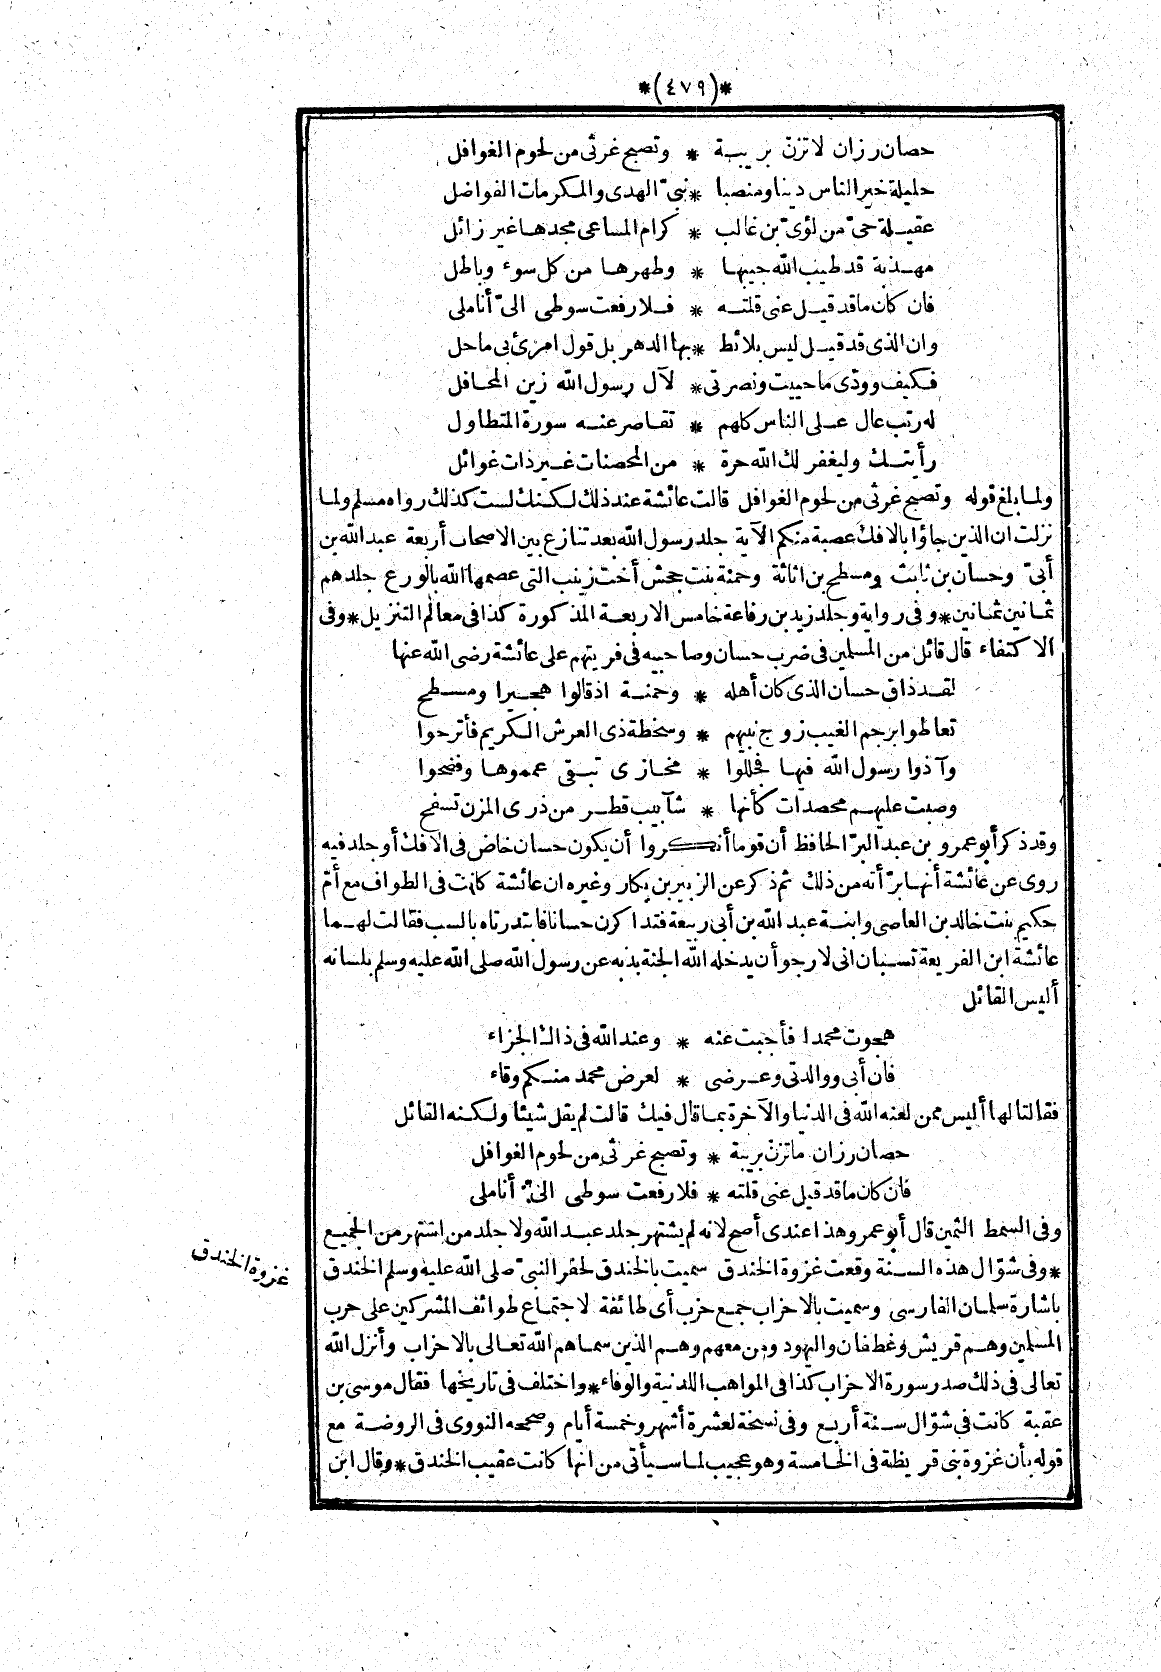 *(٤٧٩)*
حصان رزان لا تزن بريبة * وتصبح غرثى من لحوم الغوافل
حليلة خير الناس دينا ومنصبا * نبىّ الهدى والمكرمات الفواضل
عقيلة حىّ من لؤىّ بن غالب * كرام المساعى مجدها غير زائل
مهذبة قد طيب الله جيبها * وطهرها من كل سوء وباطل
فان كان ما قد قيل عنى قلته * فلا رفعت سوطى الىّ أناملى
وان الذى قد قيل ليس بلائط * بها الدهر بل قول امرئ بى ماحل
فكيف وودّى ما حييت ونصرتى * لآل رسول الله زين المحافل
له رتب عال على الناس كلهم * تقاصر عنه سورة المتطاول
رأيتك وليغفر لك الله حرة * من المحصنات غير ذات غوائل
ولما بلغ قوله وتصبح غرثى من لحوم الغوافل قالت عائشة عند ذلك لكنك لست كذلك رواه مسلم ولما
نزلت ان الذين جاؤا بالافك عصبة منكم الآية جلد رسول الله بعد تنازع بين الاصحاب أربعة عبد الله بن
أبىّ وحسان بن ثابت ومسطح بن اثاثة وحمنة بنت جحش أخت زينب التى عصمها الله بالورع جلدهم
ثمانين ثمانين * وفى رواية وجلد زيد بن رفاعة خامس الاربعة المذكورة كذا فى معالم التنزيل * وفى
الاكتفاء قال قائل من المسلمين فى ضرب حسان وصاحبيه فى فريتهم على عائشة رضى الله عنها
لقد ذاق حسان الذى كان أهله * وحمنة اذ قالوا هجيرا ومسطح
تعاطوا برجم الغيب زوج نبيهم * وسخطة ذى العرش الكريم فأترحوا
وآذوا رسول الله فيها فجللوا * مخازى تبقى عمموها وفضحوا
وصبت عليهم محصدات كأنها * شآبيب قطر من ذرى المزن تسفح
وقد ذكر أبو عمرو بن عبد البرّ الحافظ أن قوما أنكروا أن يكون حسان خاض فى الافك أو جلد فيه
روى عن عائشة أنها برّأته من ذلك ثم ذكر عن الزبير بن بكار وغيره ان عائشة كانت فى الطواف مع أمّ
حكيم بنت خالد بن العاصى وابنة عبد الله بن أبى ربيعة فتذاكرن حسانا فابتدرتاه بالسب فقالت لهما
عائشة ابن الفريعة تسبان انى لارجو أن يدخله الله الجنة بذبه عن رسول الله صلى الله عليه وسلم بلسانه
أليس القائل
هجوت محمدا فأجبت عنه * وعند الله فى ذاك الجزاء
فان أبى ووالدتى وعرضى * لعرض محمد منكم وقاء
فقالتا لها أليس ممن لعنه الله فى الدنيا والآخرة بما قال فيك قالت لم يقل شيئا ولكنه القائل
حصان رزان ما تزن بريبة * وتصبح غرثى من لحوم الغوافل
فان كان ما قد قيل عنى قلته * فلا رفعت سوطى الىّ أناملى
وفى السمط الثمين قال أبو عمرو وهذا عندى أصح لانه لم يشتهر جلد عبد الله ولا جلد من اشتهر من الجميع
* وفى شوّال هذه السنة وقعت غزوة الخندق سميت بالخندق لحفر النبىّ صلى الله عليه وسلم الخندق
غزوة الخندق
باشارة سلمان الفارسى وسميت بالاحزاب جمع حزب أى طائفة لاجتماع طوائف المشركين على حرب
المسلمين وهم قريش وغطفان واليهود ومن معهم وهم الذين سماهم الله تعالى بالاحزاب وأنزل الله
تعالى فى ذلك صدر سورة الاحزاب كذا فى المواهب اللدنية والوفاء * واختلف فى تاريخها فقال موسى بن
عقبة كانت فى شوّال سنة أربع وفى نسخة لعشرة أشهر وخمسة أيام وصححه النووى فى الروضة مع
قوله بأن غزوة بنى قريظة فى الخامسة وهو عجيب لما سيأتى من انها كانت عقيب الخندق * وقال ابن